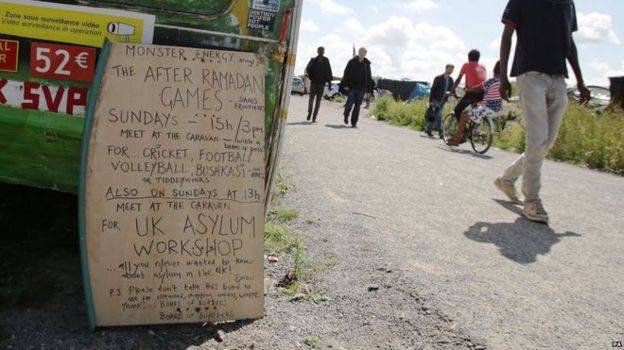 Zone sous surveillance vidéo
Video surveillance
in operation
52€
SVP
POWER
PEOPLE
MONSTER ENERGY
THE AFTER RAMADAN
GAMES - SANS
FRONTIERES
SUNDAYS - 15h/3pm
MEET AT THE CARAVAN - with a
team if poss
FOR... CRICKET, FOOTBALL
VOLLEYBALL, BUSHKASI
OR TIDDLYWINKS
ALSO ON SUNDAYS AT 13h
MEET AT THE CARAVAN
FOR UK ASYLUM
WORKSHOP
...all you never wanted to know
about asylum in the UK!
P.S. Please don't take this board to
use for firewood, shopping
BOARD OF
BOARD OF
PA